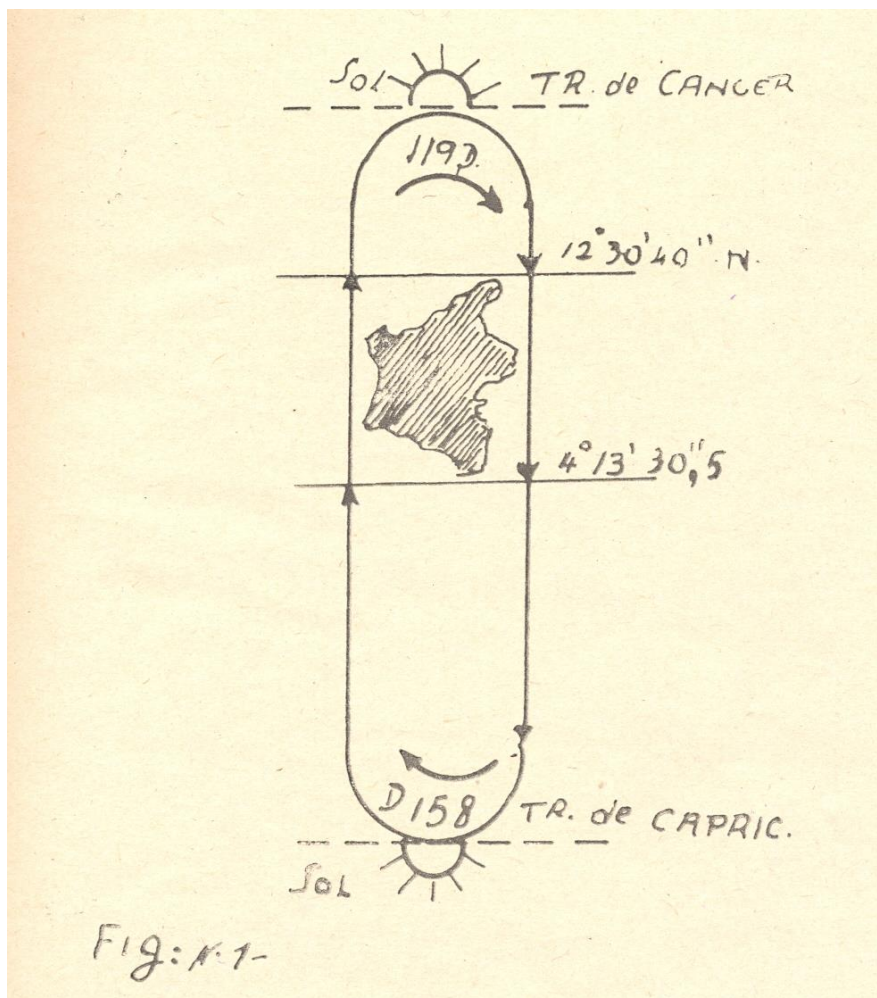 SOL TR. de CANCER
119D.
12°30'40" N.
4°13'30",S
D 158 TR. de CAPRIC.
SOL
Fig: N.1-